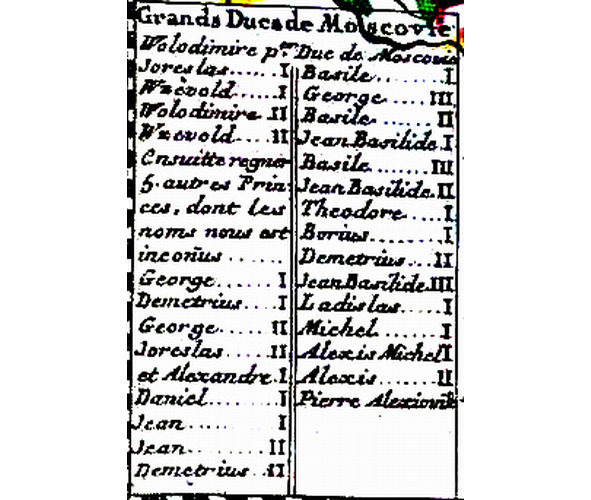 Grands Ducs de Moscovie
Wolodimire p.er Duc de Moscovie
Joreslas......I
Wzevold....I
Wolodimire II
Wzevold....II
Ensuitte regner
5. autres Prin
ces, dont les
noms nous est
inconus ......
George......I
Demetrius....I
George.....II
Joreslas.....II
et Alexandre.I
Daniel.......I
Jean......I
Jean......II
Demetrius..II
Basile........I
George.....III
Basile.......II
Jean Basilide.I
Basile.......III
Jean Basilide.II
Theodore....I
Borius.......I
Demetrius...II
Jean Basilide.III
Ladislas.....I
Michel......I
Alexis Michel I
Alexis.......II
Pierre